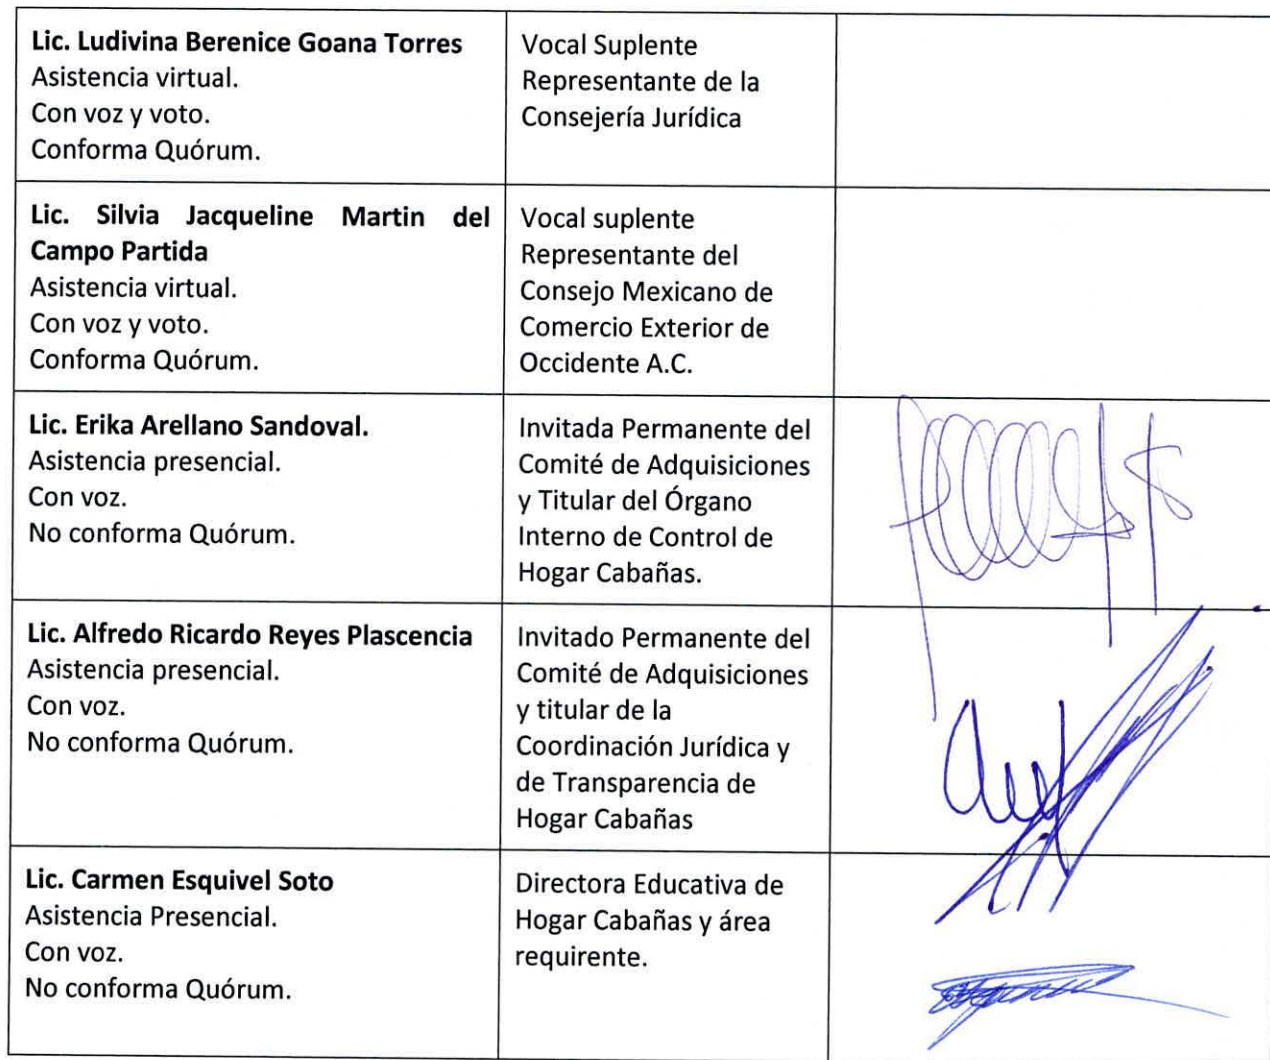 Lic. Ludivina Berenice Goana Torres
Asistencia virtual.
Con voz y voto.
Conforma Quórum.
Vocal Suplente
Representante de la
Consejería Jurídica
Lic. Silvia Jacqueline Martin del
Campo Partida
Asistencia virtual.
Con voz y voto.
Conforma Quórum.
Vocal suplente
Representante del
Consejo Mexicano de
Comercio Exterior de
Occidente A.C.
Lic. Erika Arellano Sandoval.
Asistencia presencial.
Con voz.
No conforma Quórum.
Invitada Permanente del
Comité de Adquisiciones
y Titular del Órgano
Interno de Control de
Hogar Cabañas.
Lic. Alfredo Ricardo Reyes Plascencia
Asistencia presencial.
Con voz.
No conforma Quórum.
Invitado Permanente del
Comité de Adquisiciones
y titular de la
Coordinación Jurídica y
de Transparencia de
Hogar Cabañas
Lic. Carmen Esquivel Soto
Asistencia Presencial.
Con voz.
No conforma Quórum.
Directora Educativa de
Hogar Cabañas y área
requirente.